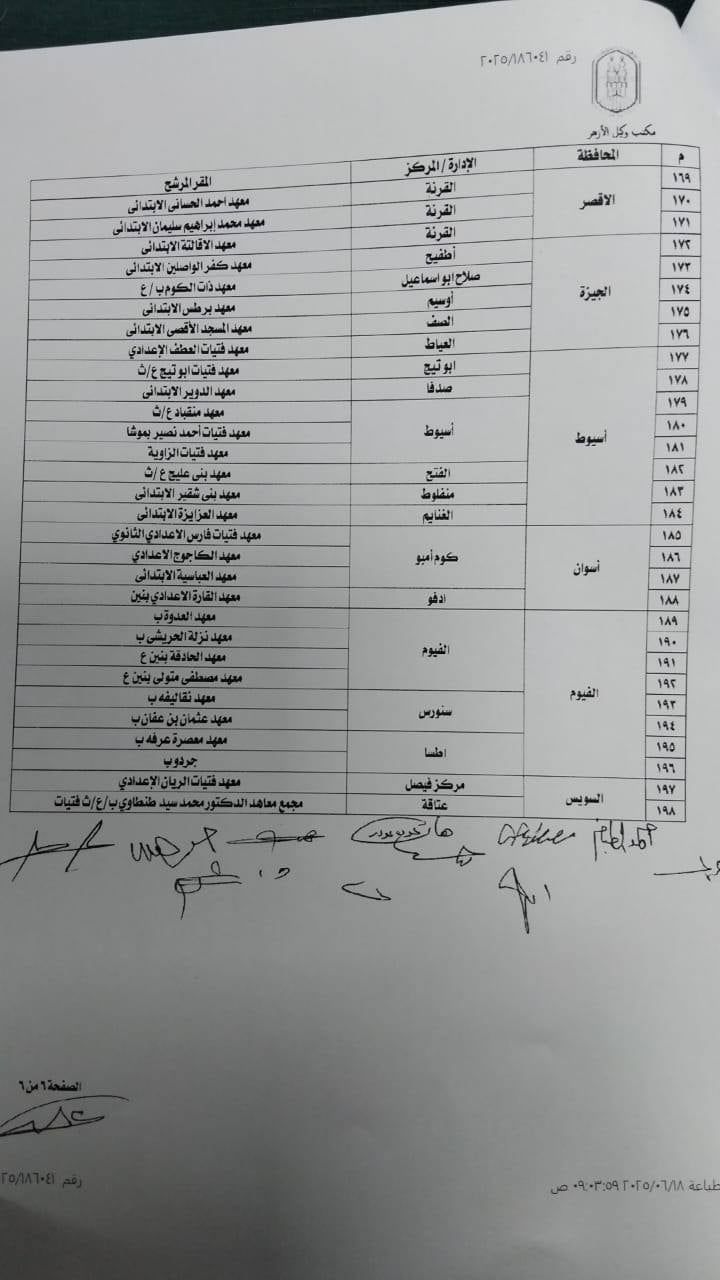 رقم ٢٠٢٥/١٨٦٠٤١
مكتب وكيل الأزهر
م المحافظة الإدارة / المركز المقر المرشح
١٦٩ الأقصر القرنة معهد احمد الحسانى الابتدائى
١٧٠ القرنة معهد محمد إبراهيم سليمان الابتدائى
١٧١ القرنة معهد الاقالتة الابتدائى
١٧٢ الجيزة أطفيح معهد كفر الواصلين الابتدائى
١٧٣ صلاح ابو اسماعيل معهد ذات الكوم ب/ ع
١٧٤ أوسيم معهد برطس الابتدائى
١٧٥ الصف معهد المسجد الأقصى الابتدائى
١٧٦ العياط معهد فتيات العطف الإعدادي
١٧٧ أسيوط ابوتيج معهد فتيات ابوتيج ع/ث
١٧٨ صدفا معهد الدوير الابتدائى
١٧٩ أسيوط معهد منقباد ع/ث
١٨٠ معهد فتيات أحمد نصير بموشا
١٨١ معهد فتيات الزاوية
١٨٢ الفتح معهد بنى عليج ع /ث
١٨٣ منفلوط معهد بنى شقير الابتدائى
١٨٤ الغنايم معهد العزايزة الابتدائى
١٨٥ أسوان كوم أمبو معهد فتيات فارس الاعدادي الثانوي
١٨٦ معهد الكاجوج الاعدادي
١٨٧ معهد العباسية الابتدائى
١٨٨ ادفو معهد القارة الاعدادي بنين
١٨٩ الفيوم الفيوم معهد العدوة ب
١٩٠ معهد نزلة الحريشى ب
١٩١ معهد الحادقة بنين ع
١٩٢ معهد مصطفى متولى بنين ع
١٩٣ سنورس معهد نقاليفه ب
١٩٤ معهد عثمان بن عفان ب
١٩٥ اطسا معهد معصرة عرفه ب
١٩٦ جردو ب
١٩٧ السويس مركز فيصل معهد فتيات الريان الإعدادي
١٩٨ عتاقة مجمع معاهد الدكتور محمد سيد طنطاوي ب/ع/ث فتيات
الصفحة ٦ من ٦
طباعة ٢٠٢٥/٠٦/١٨ ٠٩:٠٣:٥٩ ص
رقم ٢٥/١٨٦٠٤١